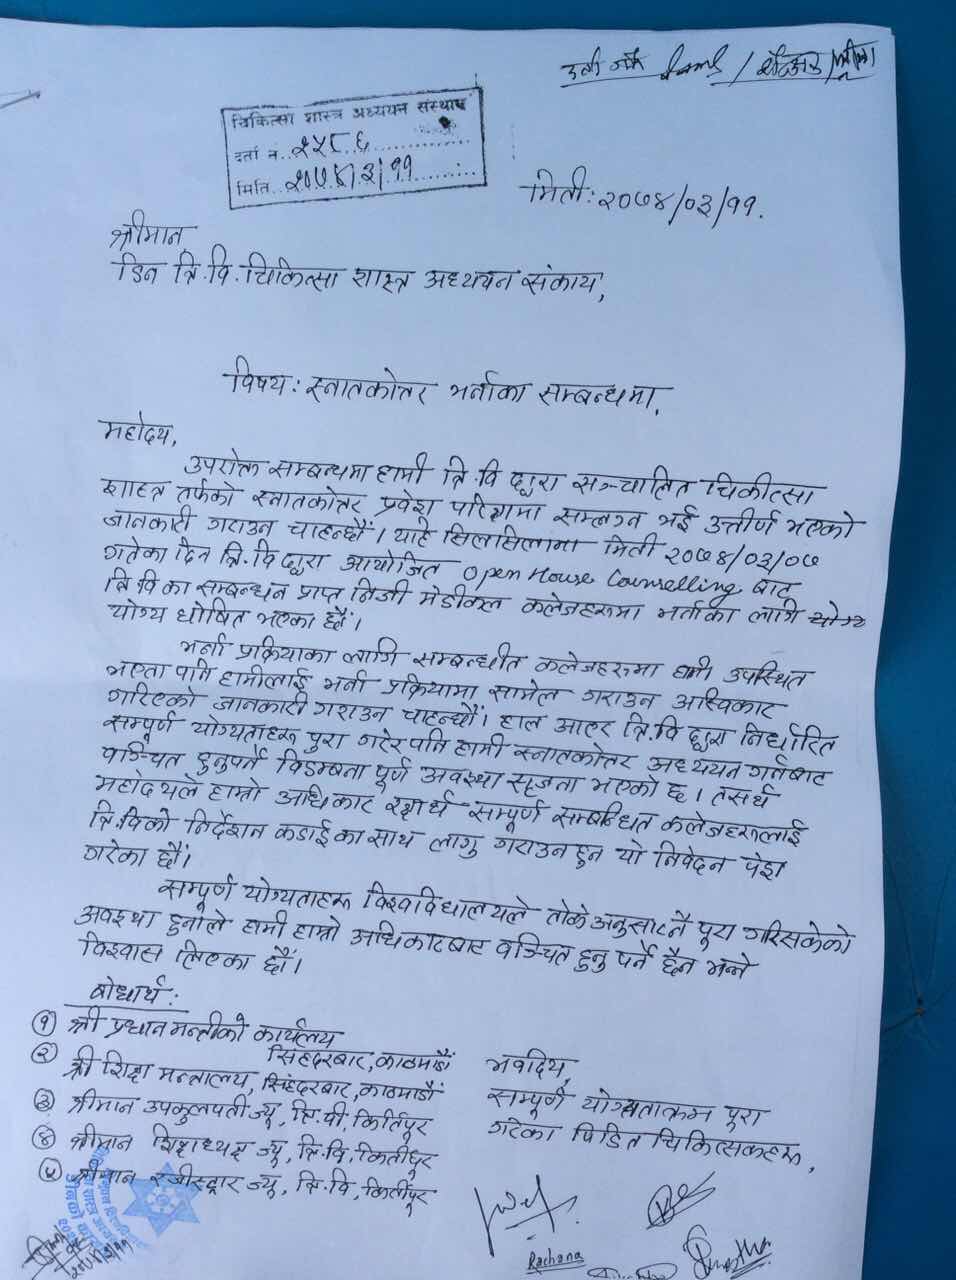 चिकित्सा शास्त्र अध्ययन संस्थान
दर्ता नं. २५८६
मिति. २०७४/३/११
मिती: २०७४/०३/११.
श्रीमान,
डिन त्रि.वि. चिकित्सा शास्त्र अध्ययन संकाय,
विषय: स्नातकोत्तर भर्नाका सम्बन्धमा.
महोदय,
उपरोक्त सम्बन्धमा हामी त्रि.वि द्धारा सञ्चालित चिकीत्सा
शास्त्र तर्फको स्नातकोत्तर प्रवेश परिक्षामा सम्लग्न भई उत्तीर्ण भएको
जानकारी गराउन चाहन्छौं। यहि सिलसिलामा मिती २०७४/०३/०७
गतेका दिन त्रि.वि द्धारा आयोजित Open House Counselling बाट
त्रि.वि का सम्बन्धन प्राप्त निजी मेडीकल कलेजहरुमा भर्ताका लागि योग्य
योग्य घोषित भएका छौं।
भर्ना प्रक्रियाका लागि सम्बन्धीत कलेजहरुमा हामी उपस्थित
भएता पनि हामीलाई भर्ना प्रक्रियामा सामेल गराउन अस्विकार
गरिएको जानकारी गराउन चाहन्छौं। हाल आएर त्रि.वि द्धारा निर्धारित
सम्पूर्ण योग्यताहरु पुरा गरेर पनि हामी स्नातकोत्तर अध्ययन गर्नबाट
वञ्चित हुनुपर्ने विडम्बना पूर्ण अवस्था सृजना भएको छ। तसर्थ
महोदयले हाम्रो अधिकार रक्षार्थ सम्पूर्ण सम्बन्धित कलेजहरुलाई
त्रि.विको निर्देशन कडाईका साथ लागु गराउन हुन यो निवेदन पेश
गरेका छौं।
सम्पूर्ण योग्यताहरु विश्वविधालयले तोके अनुसार नै पूरा गरिसकेको
अवस्था हुनाले हामी हाम्रो अधिकारबाट वञ्चित हुनु पर्ने छैन भन्ने
विश्वास लिएका छौं।
बोधार्थ:
१ श्री प्रधानमन्त्रीको कार्यलय
सिंहदरबार, काठमाडौं
२ श्री शिक्षा मन्त्रालय, सिंहदरबार, काठमाडौं
३ श्रीमान उपकुलपती ज्यू, त्रि.वी, किर्तिपूर
४ श्रीमान शिक्षाध्यक्ष ज्यू, त्रि.वि, किर्तीपूर
५ श्रीमान रजीस्ट्रार ज्यू, त्रि.वि, किर्तीपूर
भवदिय,
सम्पूर्ण योग्यताक्रम पुरा
गरेका पिडित चिकित्सकहरु,
Rachana
२०७४/३/११